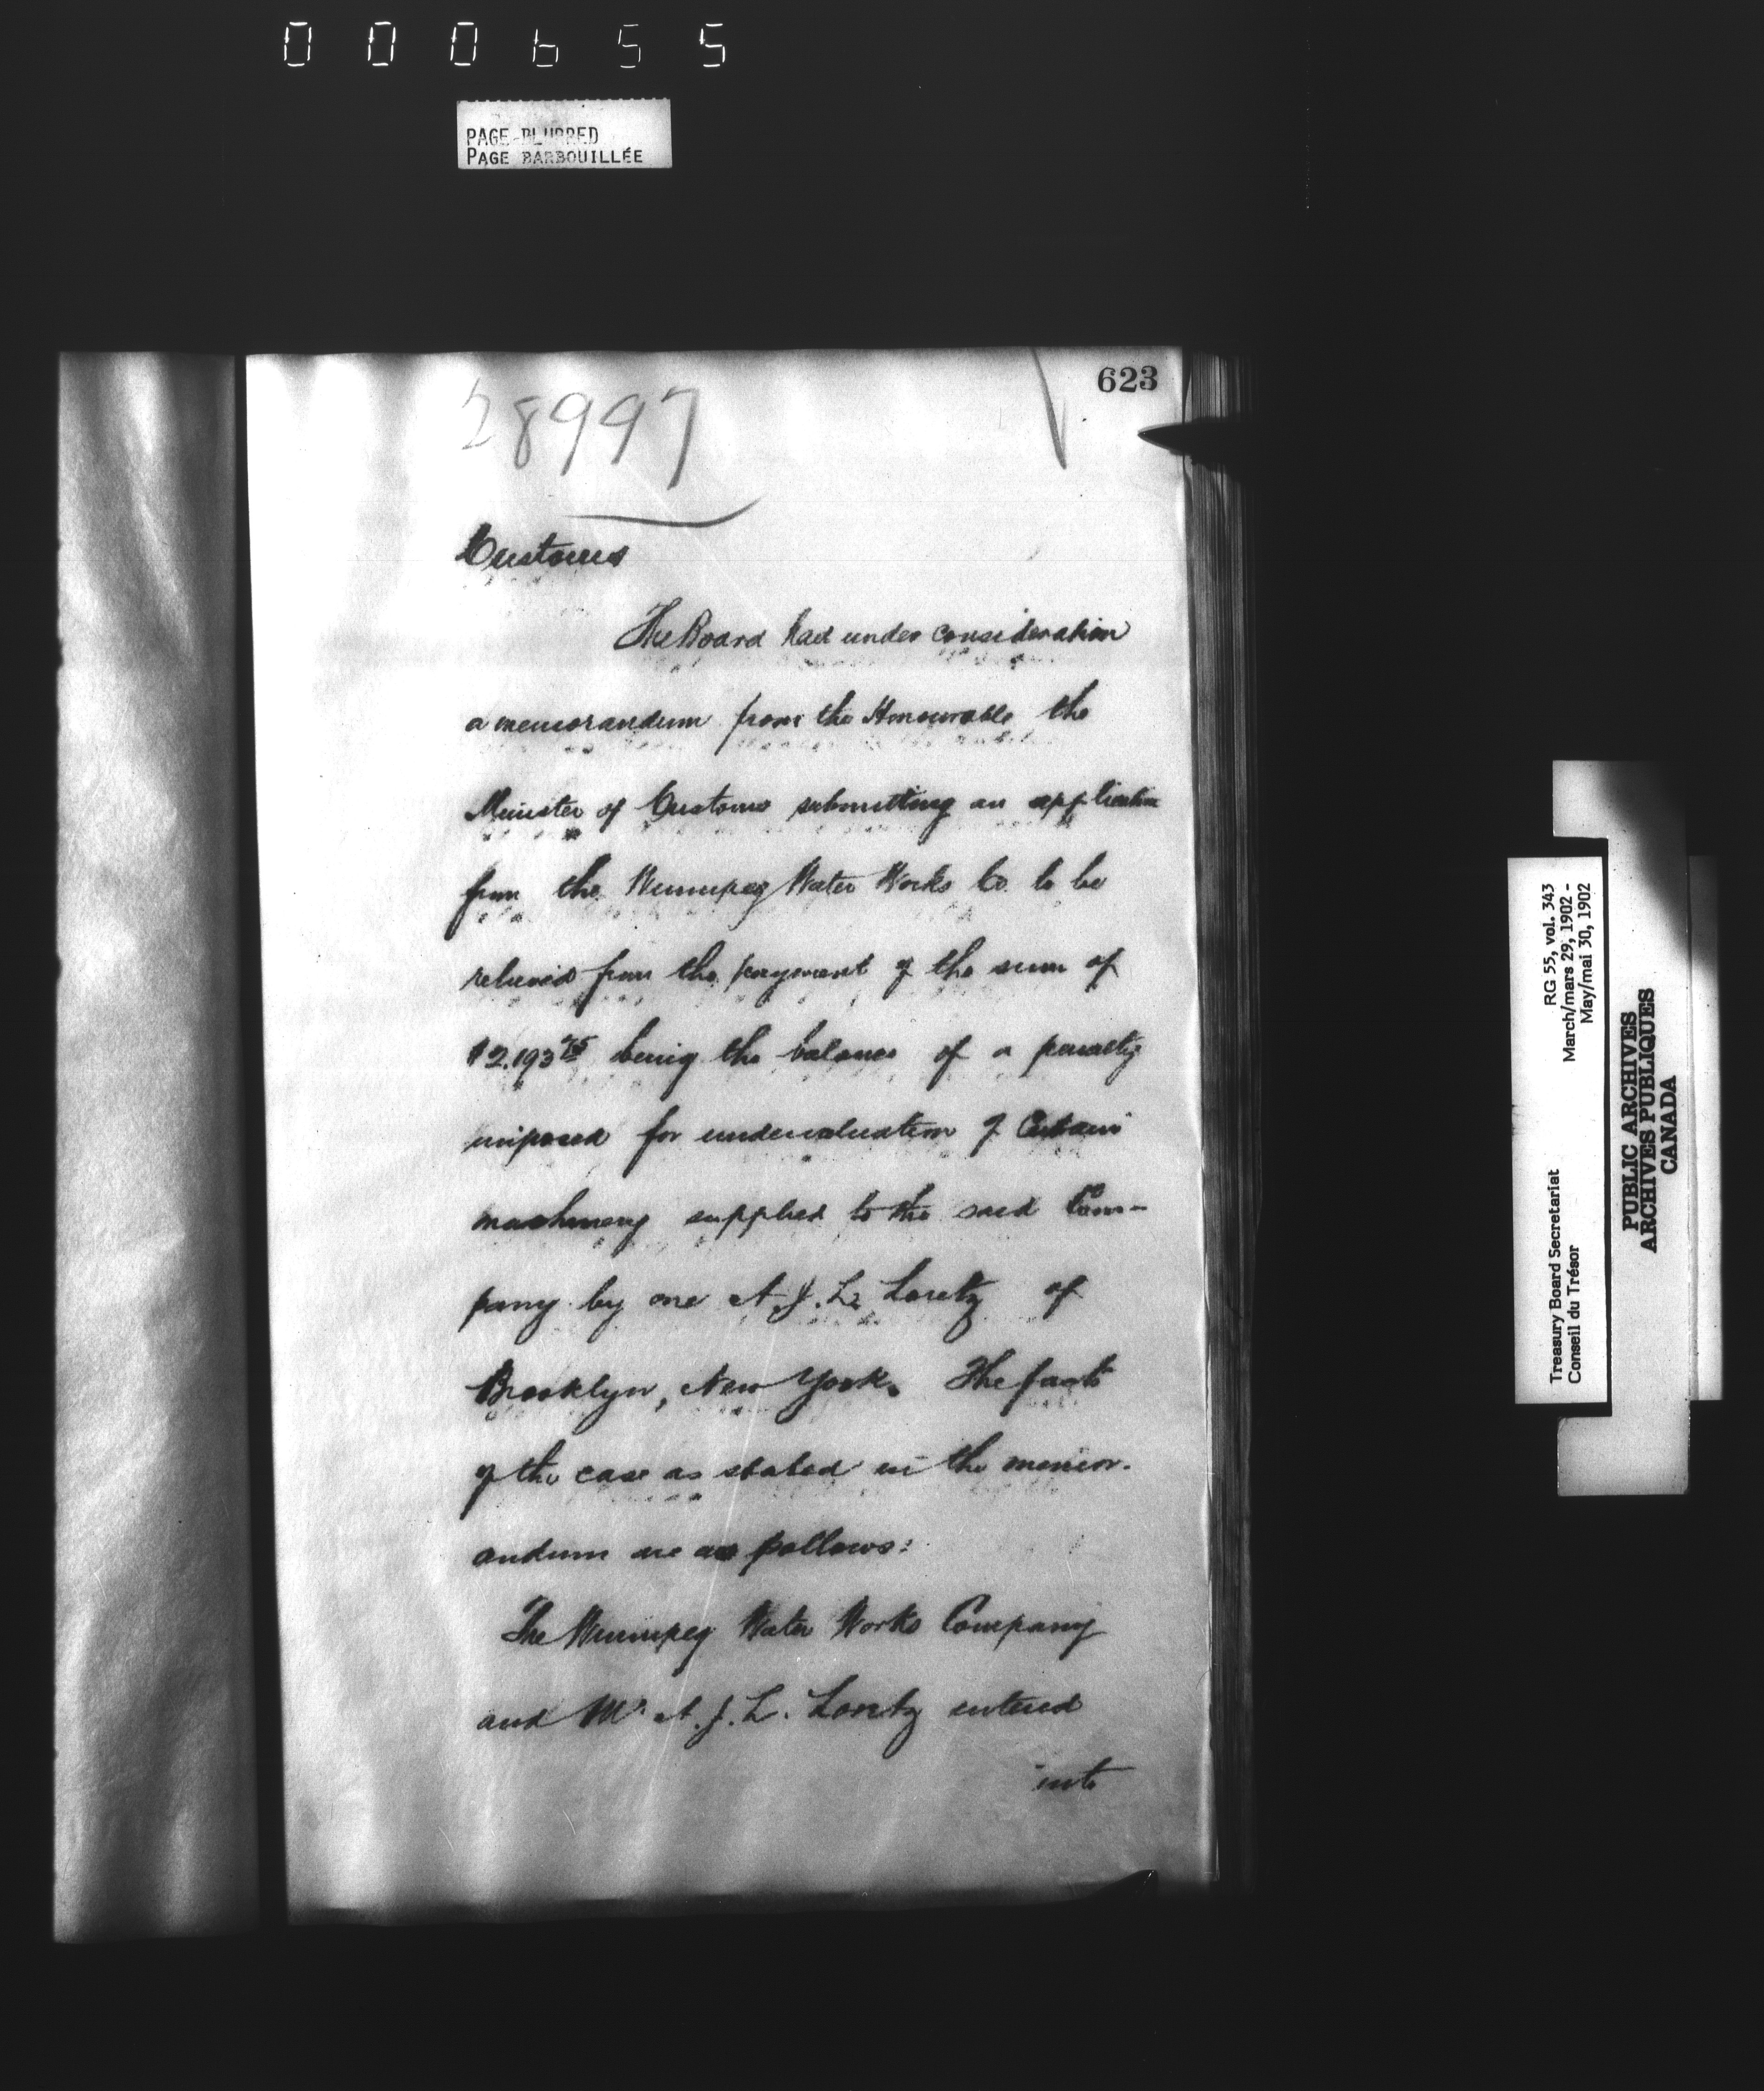 000655
PAGE BLURRED
PAGE BARBOUILLÉE
623
28997
Customs
The Board had under consideration
a memorandum from the Honourable the
Minister of Customs submitting an application
from the Winnipeg Water Works Co. to be
relieved from the payment of the sum of
$2.193 75 being the balance of a penalty
imposed for undervaluation of Certain
machinery supplied to the said Com-
pany by one A. J. L. Loretz of
Brooklyn, New York. The facts
of the case as stated in the memor-
andum are as follows:
The Winnipeg Water Works Company
and Mr A. J. L. Loretz entered
into
Treasury Board Secretariat RG 55, vol. 343
Conseil du Trésor March/mars 29, 1902 -
May/mai 30, 1902
PUBLIC ARCHIVES
ARCHIVES PUBLIQUES
CANADA